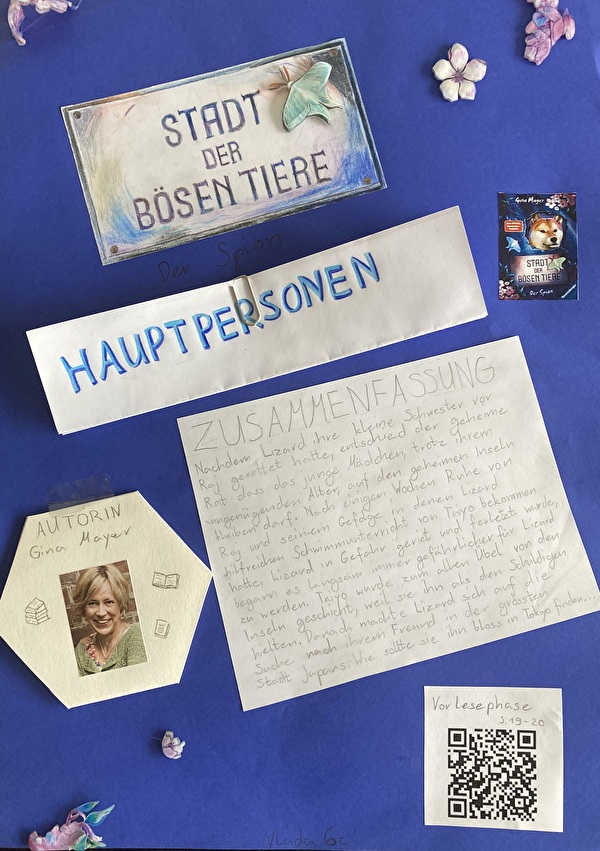 STADT
DER
BÖSEN TIERE
Der Spion
Gina Mayer
STADT
DER
BÖSEN TIERE
Der Spion
HAUPTPERSONEN
ZUSAMMENFASSUNG
Nachdem Lizard ihre kleine Schwester vor
Raj gerettet hatte, entschied der geheime
Rat dass das junge Mädchen, trotz ihrem
ungenügenden Alter, auf den geheimen Inseln
bleiben darf. Nach einigen Wochen Ruhe von
Raj und seinem Gefolge in denen Lizard
hilfreichen Schwimmunterricht von Taiyo bekommen
hatte, Lizard in Gefahr geriet und verletzt wurde,
begann es langsam immer gefährlicher für Lizard
zu werden. Taiyo wurde zum allen Übel von den
Inseln geschickt, weil sie ihn als den Schuldigen
hielten. Danach machte Lizard sich auf die
Suche nach ihrem Freund in der grössten
Stadt Japans. Wie sollte sie ihn bloss in Tokyo finden...
AUTORIN
Gina Mayer
Vorlesephase
S. 19-20
6c